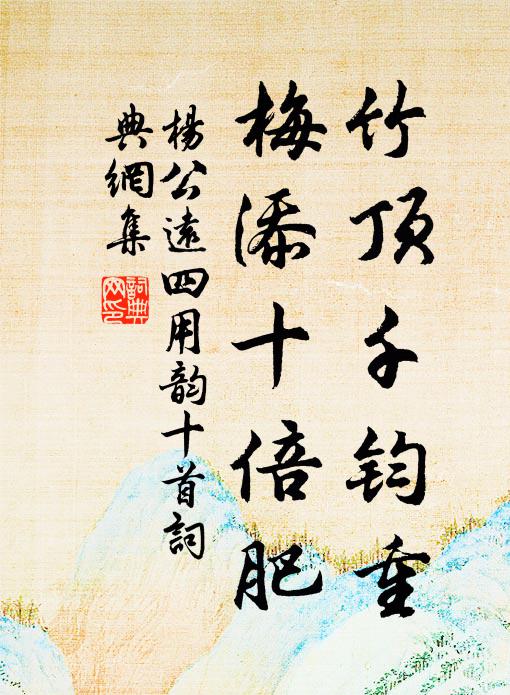 竹頂千鈞重
梅添十倍肥
楊公遠四用韵十首詞
典網集
詞典網印